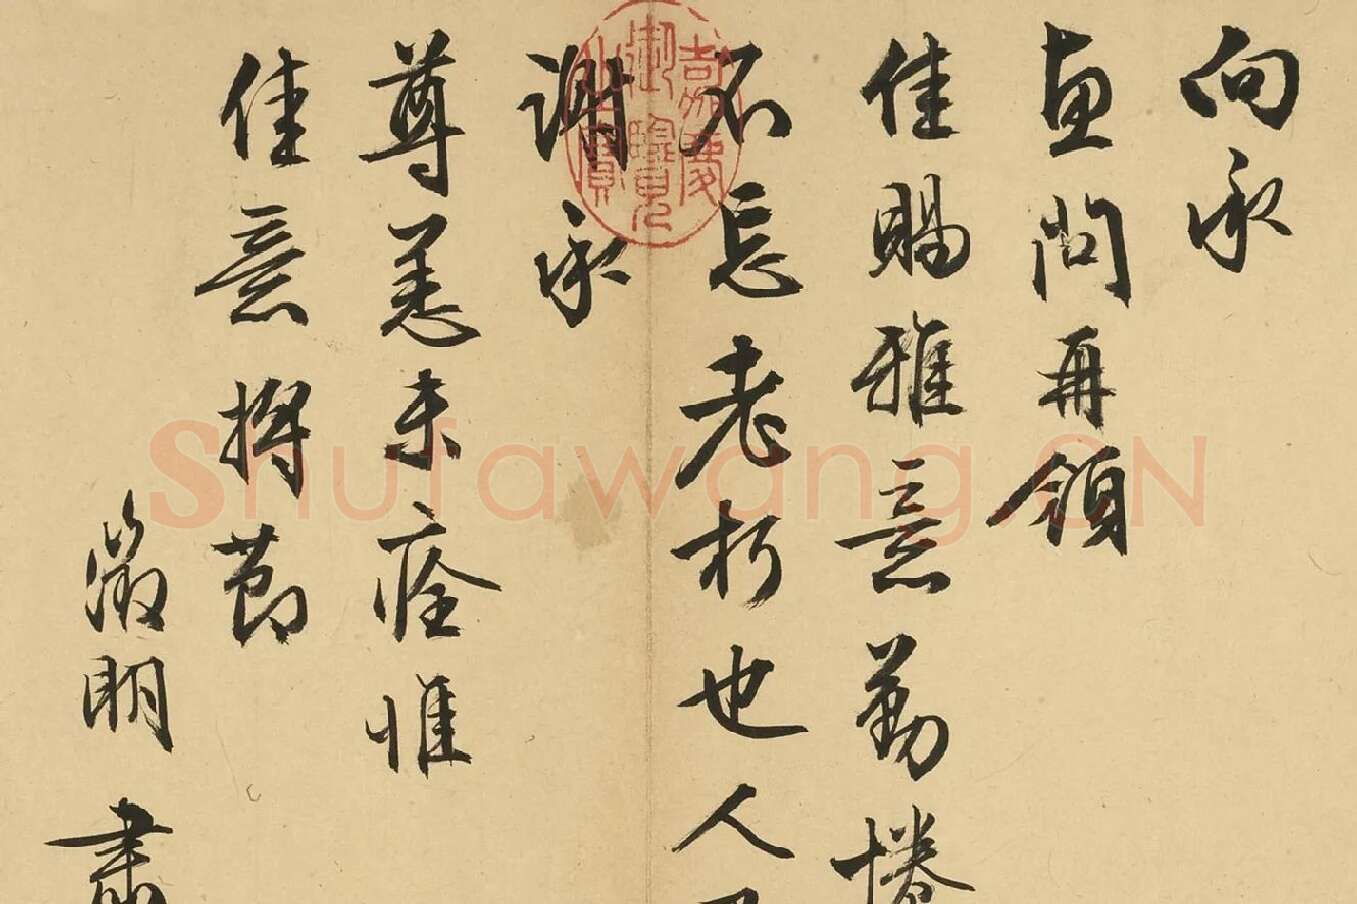 向承
惠問再領
佳賜雅意勤惓
不忘老朽也人
謝承
尊恙未痊惟
佳意撙節
徵明肅
嘉慶御覽之寶
Shufawang.CN